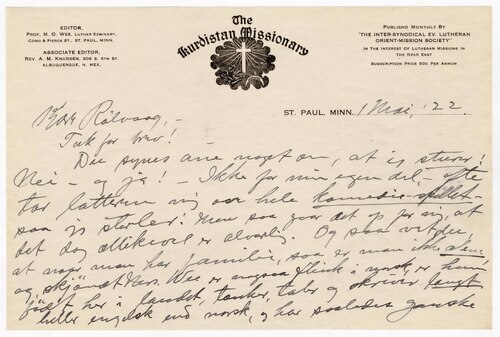 EDITOR,
PROF. M. O. WEE, LUTHER SEMINARY,
COMO & PIERCE ST., ST. PAUL, MINN.
ASSOCIATE EDITOR,
REV. A. M. KNUDSEN, 306 S. 6TH ST.
ALBUQUERQUE, N. MEX.
The
Kurdistan Missionary
PUBLISHED MONTHLY BY
"THE INTER-SYNODICAL EV. LUTHERAN
ORIENT-MISSION SOCIETY"
IN THE INTEREST OF LUTHERAN MISSIONS IN
THE NEAR EAST
SUBSCRIPTION PRICE 50C PER ANNUM
ST. PAUL, MINN. 1 Mai, '22
Rølvaag, –
Tak for brev!
Du synes ane noget om, at is sturer!
Nei – og ja! – Ikke for min egen del, – ofte
tar latteren mig over hele komedie-spillet –
saa jeg storler! Men saa gaar det op for mig, at
det dog allikevel er alvorlig. Og saa vet du,
at naar man har familie, saa er man ikke alene
og Wee er ogsaa flink i norsk, er han
født her i landet, tænker, taler og skriver langt
heller engelsk end norsk, og har saaledes ganske